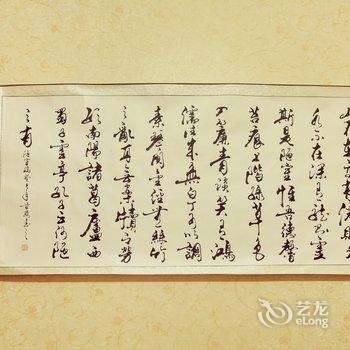 水不在深有龍則靈
斯是陋室惟吾德馨
苔痕上階綠草色
入簾青談笑有鴻
儒往來無白丁可以調
素琴閱金經無絲竹
之亂耳無案牘之勞
形南陽諸葛廬西
蜀子雲亭孔子云何陋
之有
艺龙
eLong.com